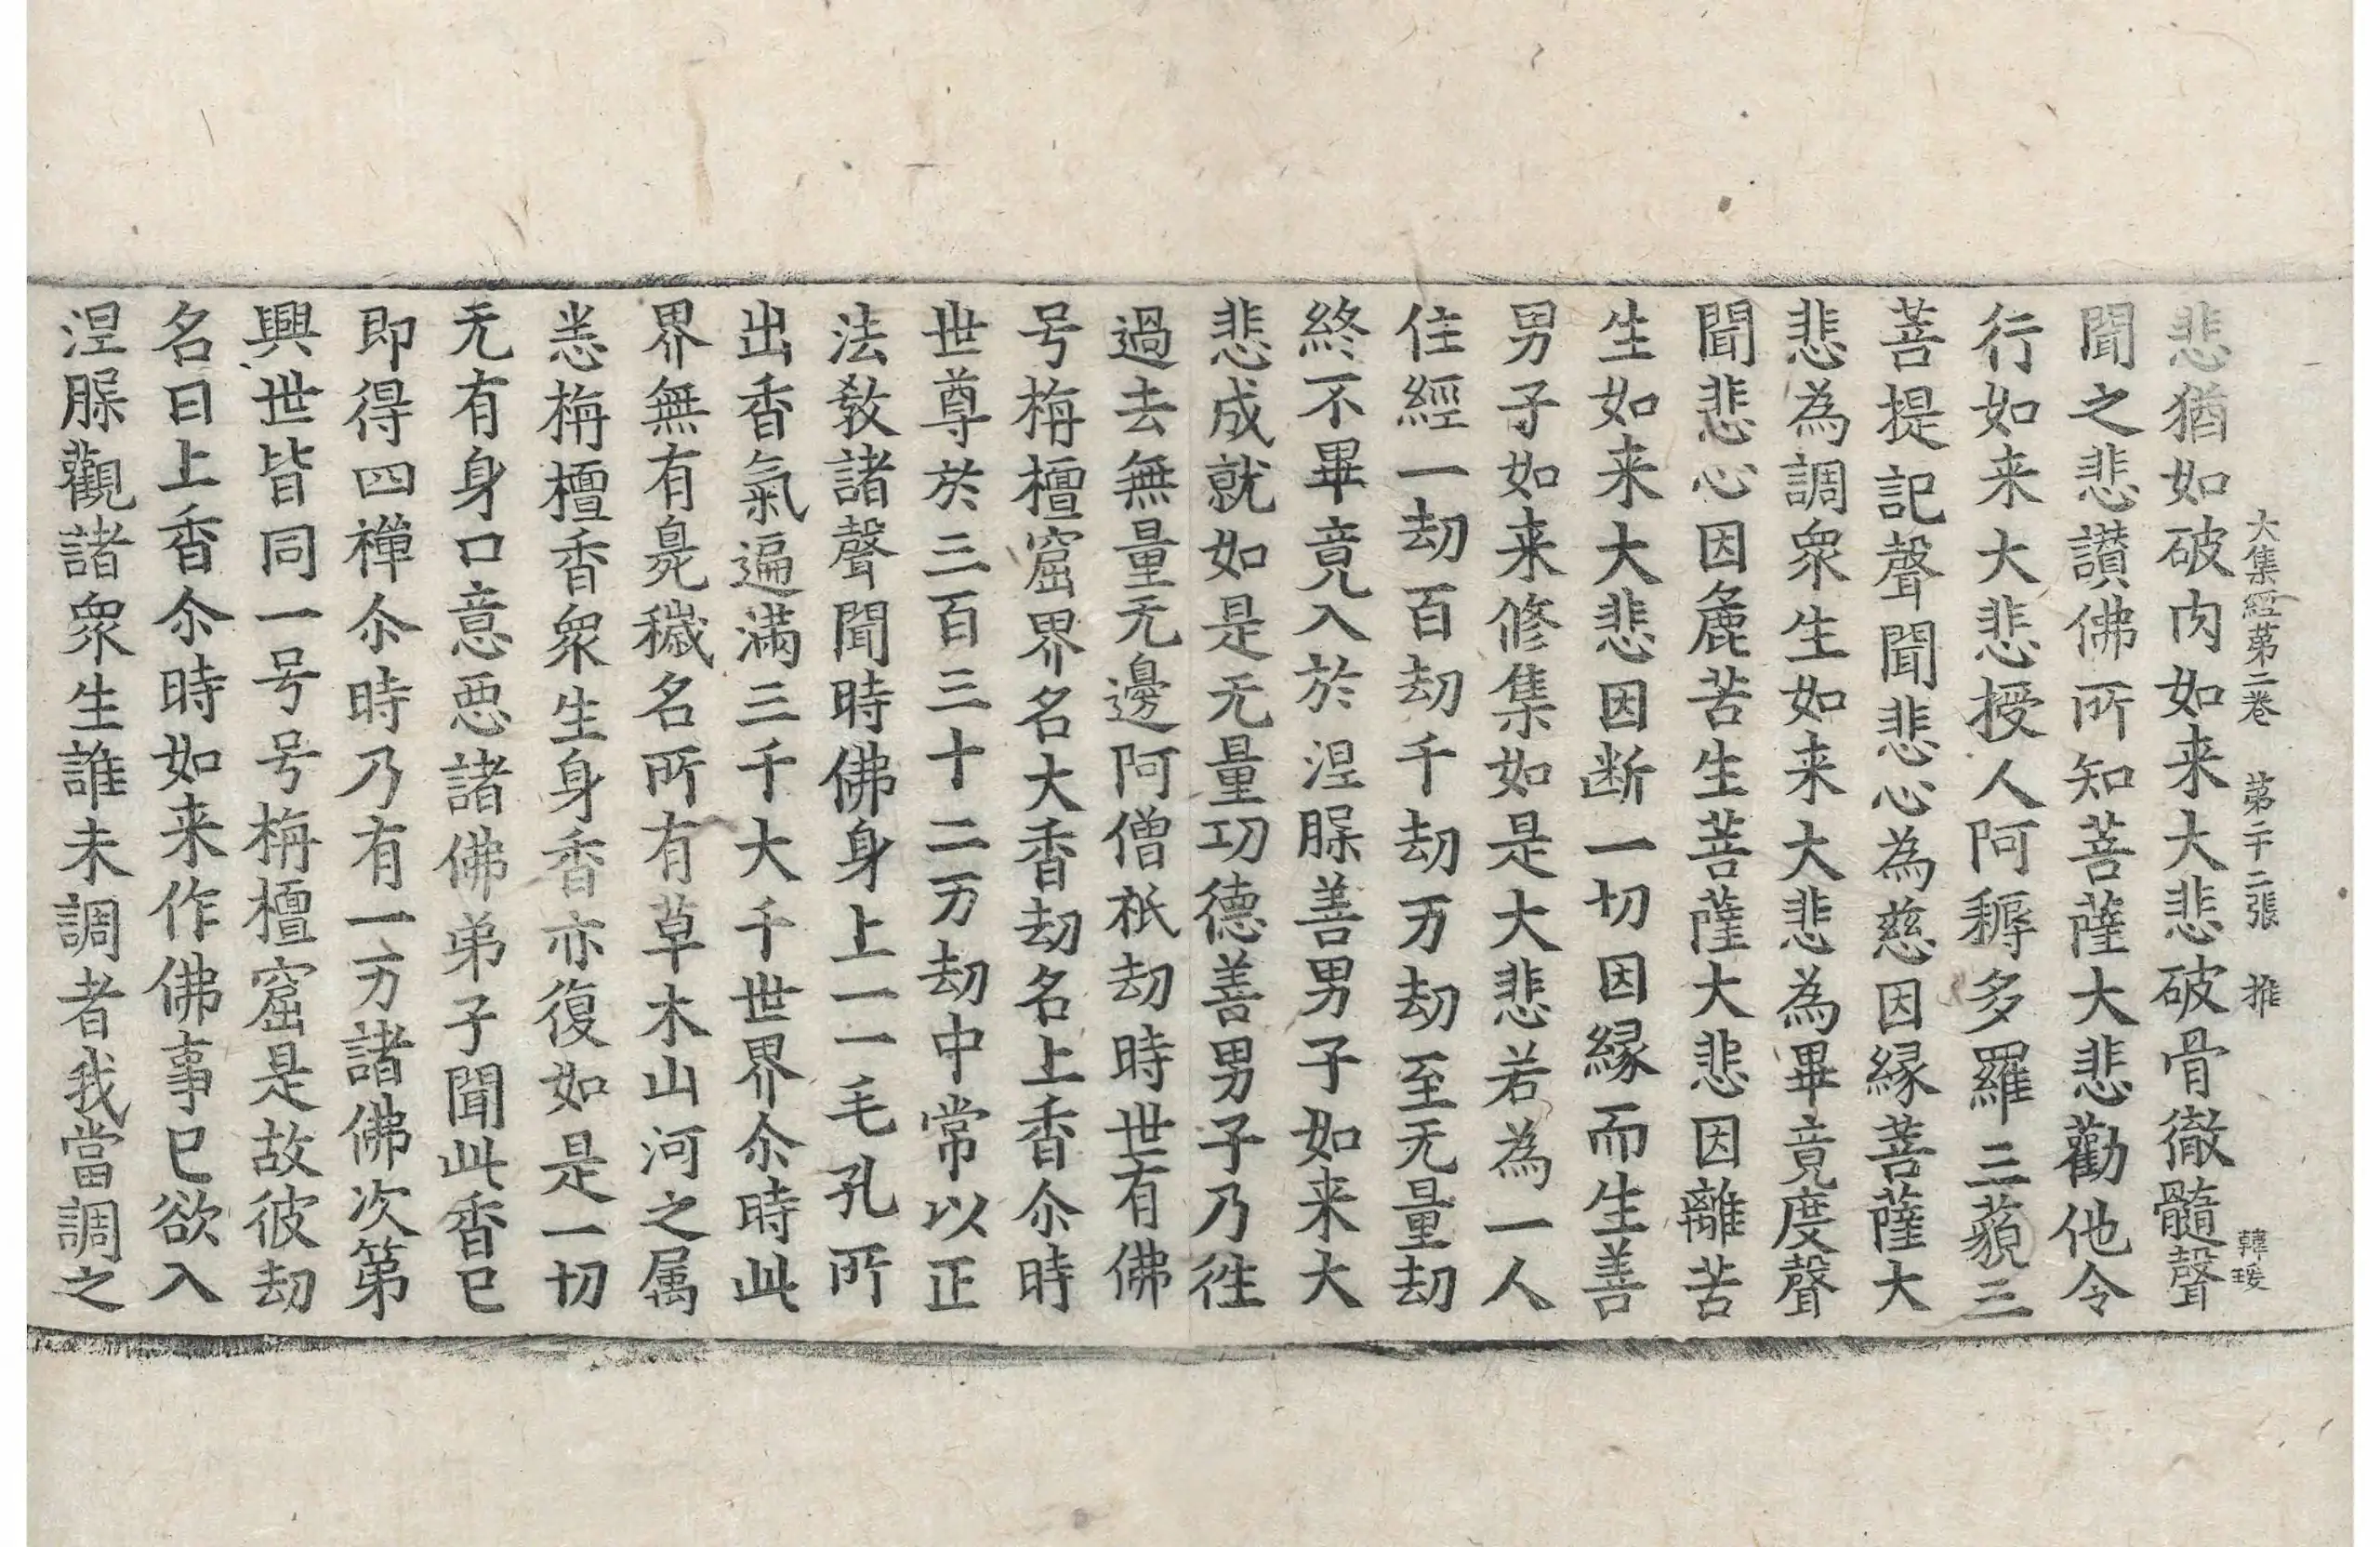 大集經第二卷 第二十二張 推
韓瑗
悲猶如破肉如来大悲破骨徹髓聲
聞之悲讃佛所知菩薩大悲勸他令
行如来大悲授人阿耨多羅三藐三
菩提記聲聞悲心為慈因縁菩薩大
悲為調衆生如来大悲為畢竟度聲
聞悲心因麁苦生菩薩大悲因離苦
生如来大悲因断一切因縁而生善
男子如来修集如是大悲若為一人
住經一劫百劫千劫万劫至无量劫
終不畢竟入於涅槃善男子如来大
悲成就如是无量功德善男子乃徃
過去無量无邊阿僧祇劫時世有佛
号栴檀窟界名大香劫名上香尒時
世尊於三百三十二万劫中常以正
法教諸聲聞時佛身上一一毛孔所
出香氣遍滿三千大千世界尒時此
界無有臭穢名所有草木山河之属
悉栴檀香衆生身香亦復如是一切
无有身口意惡諸佛弟子聞此香已
即得四禪尒時乃有一万諸佛次第
興世皆同一号号栴檀窟是故彼劫
名曰上香尒時如来作佛事已欲入
涅槃觀諸衆生誰未調者我當調之